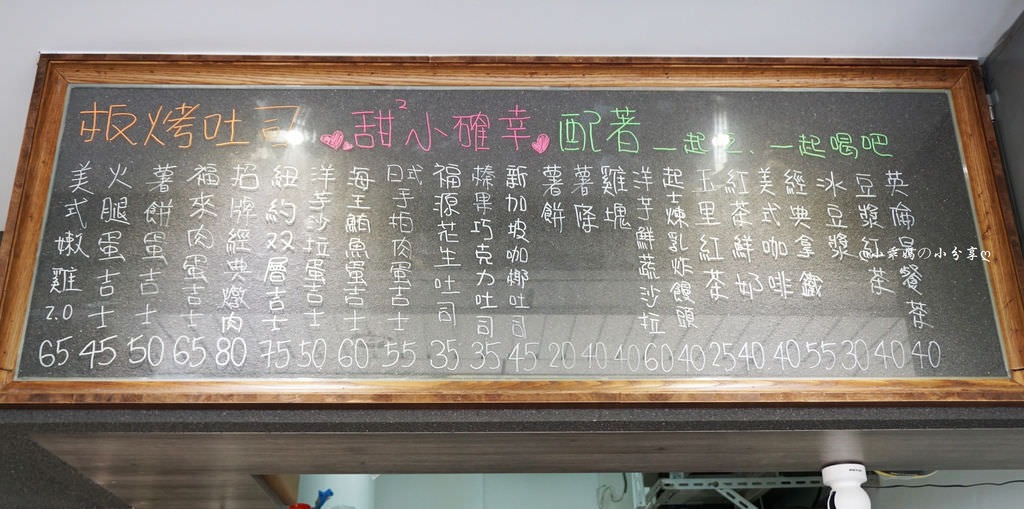 板烤吐司 甜²小確幸 配著一起吃、一起喝吧
美式嫩雞2.0 65
火腿蛋吉士 45
薯餅蛋吉士 50
福來肉蛋吉士 65
招牌經典燉肉 80
紐約双層吉士 75
洋芋沙拉蛋吉士 50
海王鮪魚蛋吉士 60
日式手拍肉蛋吉士 55
福源花生吐司 35
榛果巧克力吐司 35
新加坡咖椰吐司 45
薯餅 20
薯條 40
雞塊 40
洋芋鮮蔬沙拉 60
起士煉乳炸饅頭 40
五里紅茶 25
紅茶鮮奶 40
美式咖啡 40
經典拿鐵 55
冰豆漿 30
豆漿紅茶 40
英倫早餐茶 40
の小分享